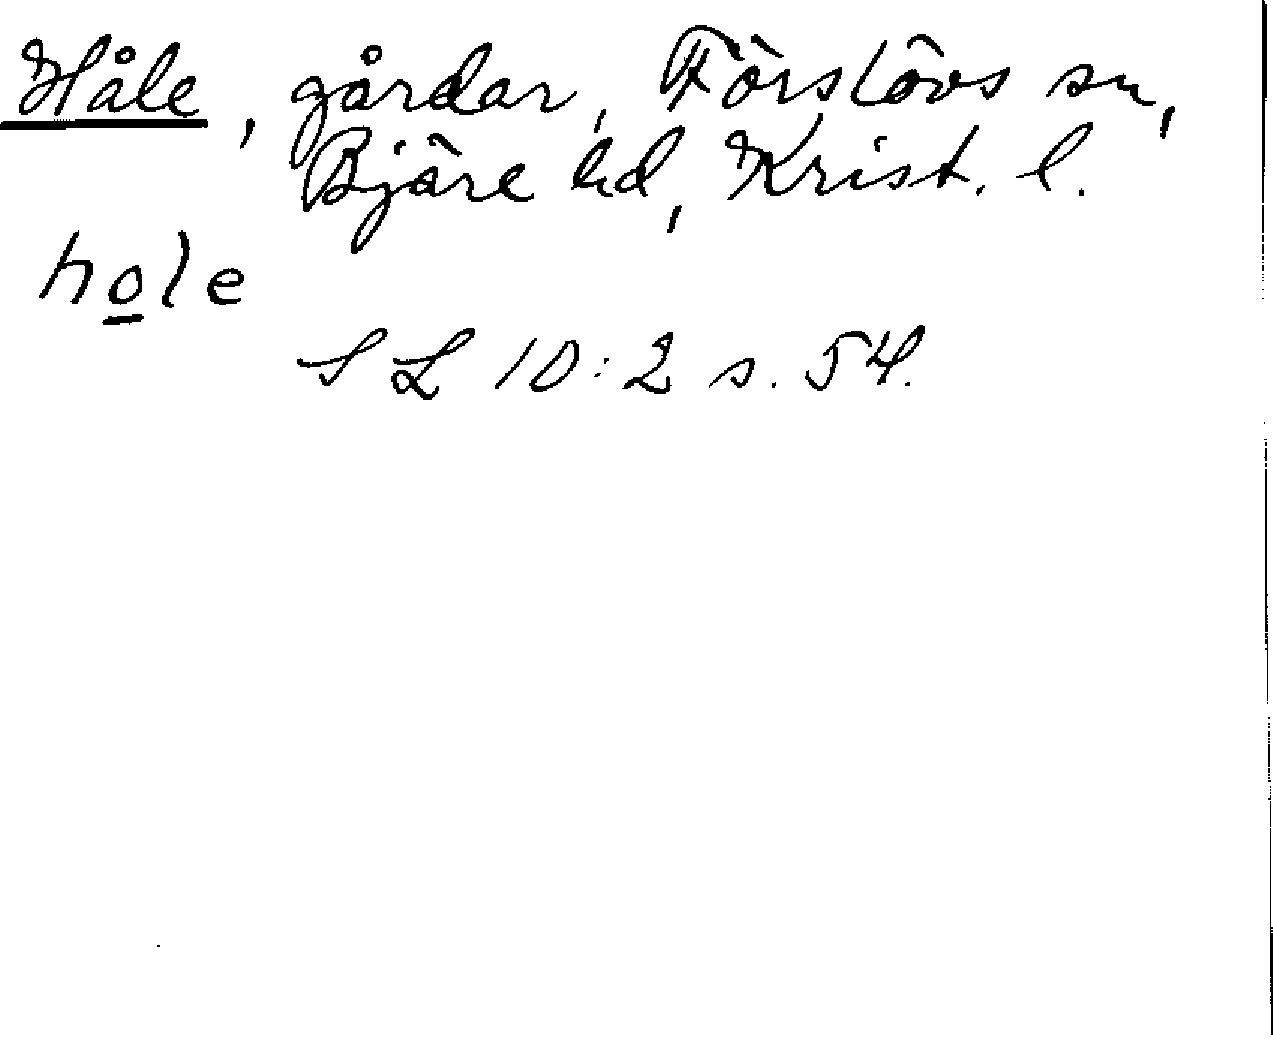 Håle, gårdar, Förslövs sn,
Bjäre hd, Krist. l.
hole
SL 10:2 s. 54.